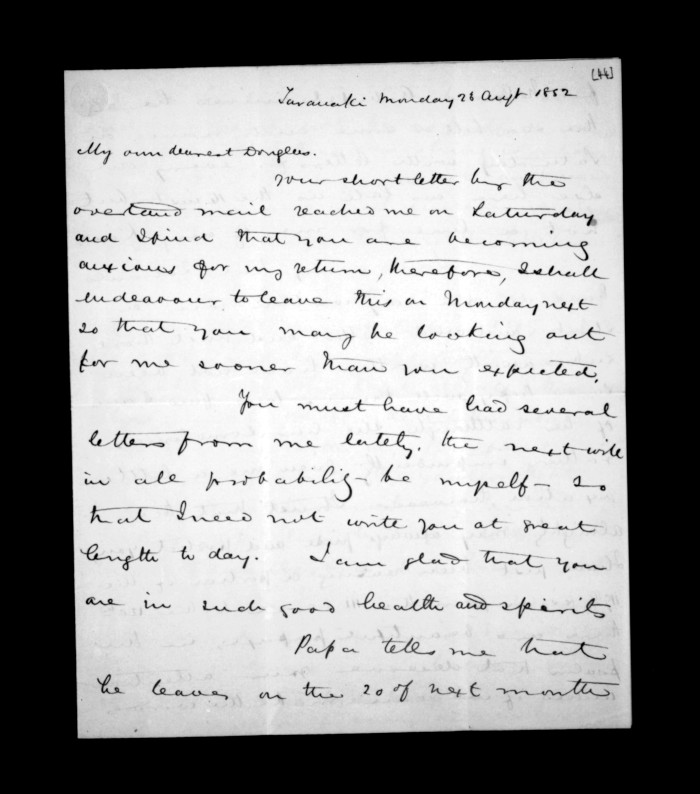 [44]
Taranaki Monday 28 Augt 1852
My own dearest Douglas.
Your short letter by the
overland mail reached me on Saturday
and I find that you are becoming
anxious for my return, therefore, I shall
endeavour to leave this on Monday next
so that you may be looking out
for me sooner than you expected.
You must have had several
letters from me lately, the next will
in all probability be myself - so
that I need not write you at great
length to day. I am glad that you
are in such good health and spirits
Papa tells me that
he leaves on the 20 of next month